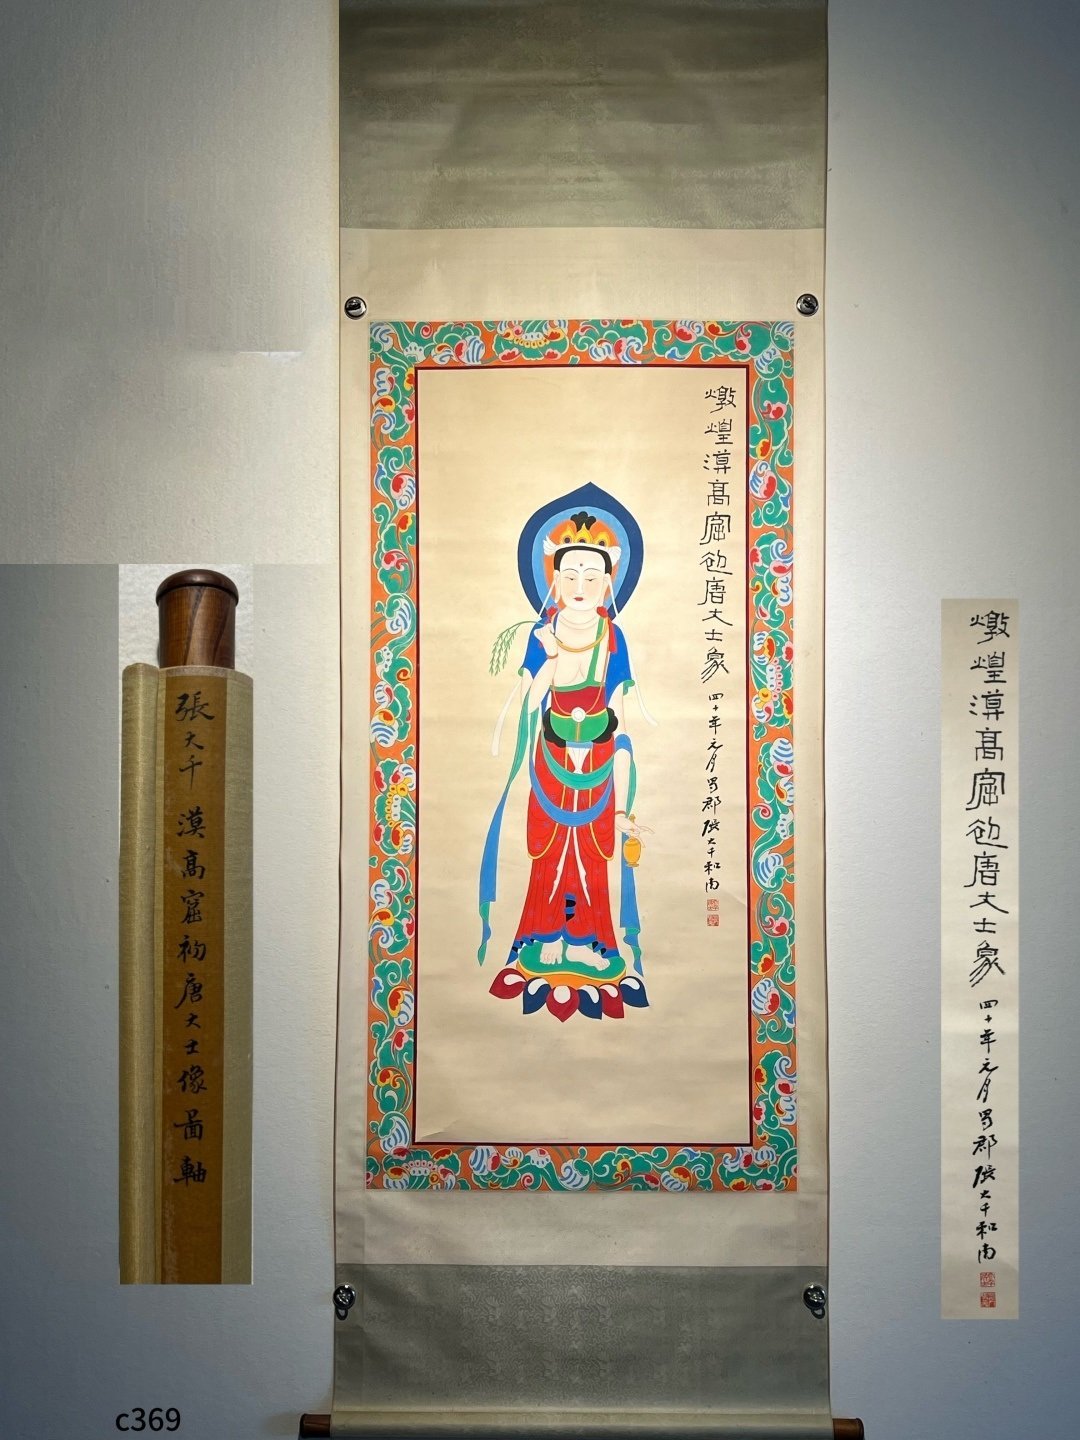 燉煌漠高窟初唐大士象
四十年元月蜀郡張大千和南
張大千漠高窟初唐大士像啚軸
燉煌漠高窟初唐大士象
四十年元月蜀郡張大千和南
c369